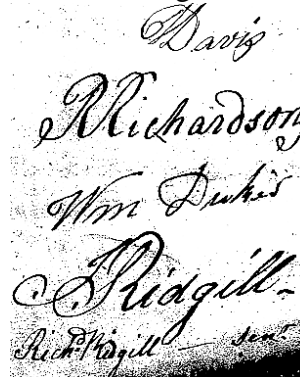 Davis
R Richardson
Wm Dukes
J Ridgill
Richd Ridgill — Senr